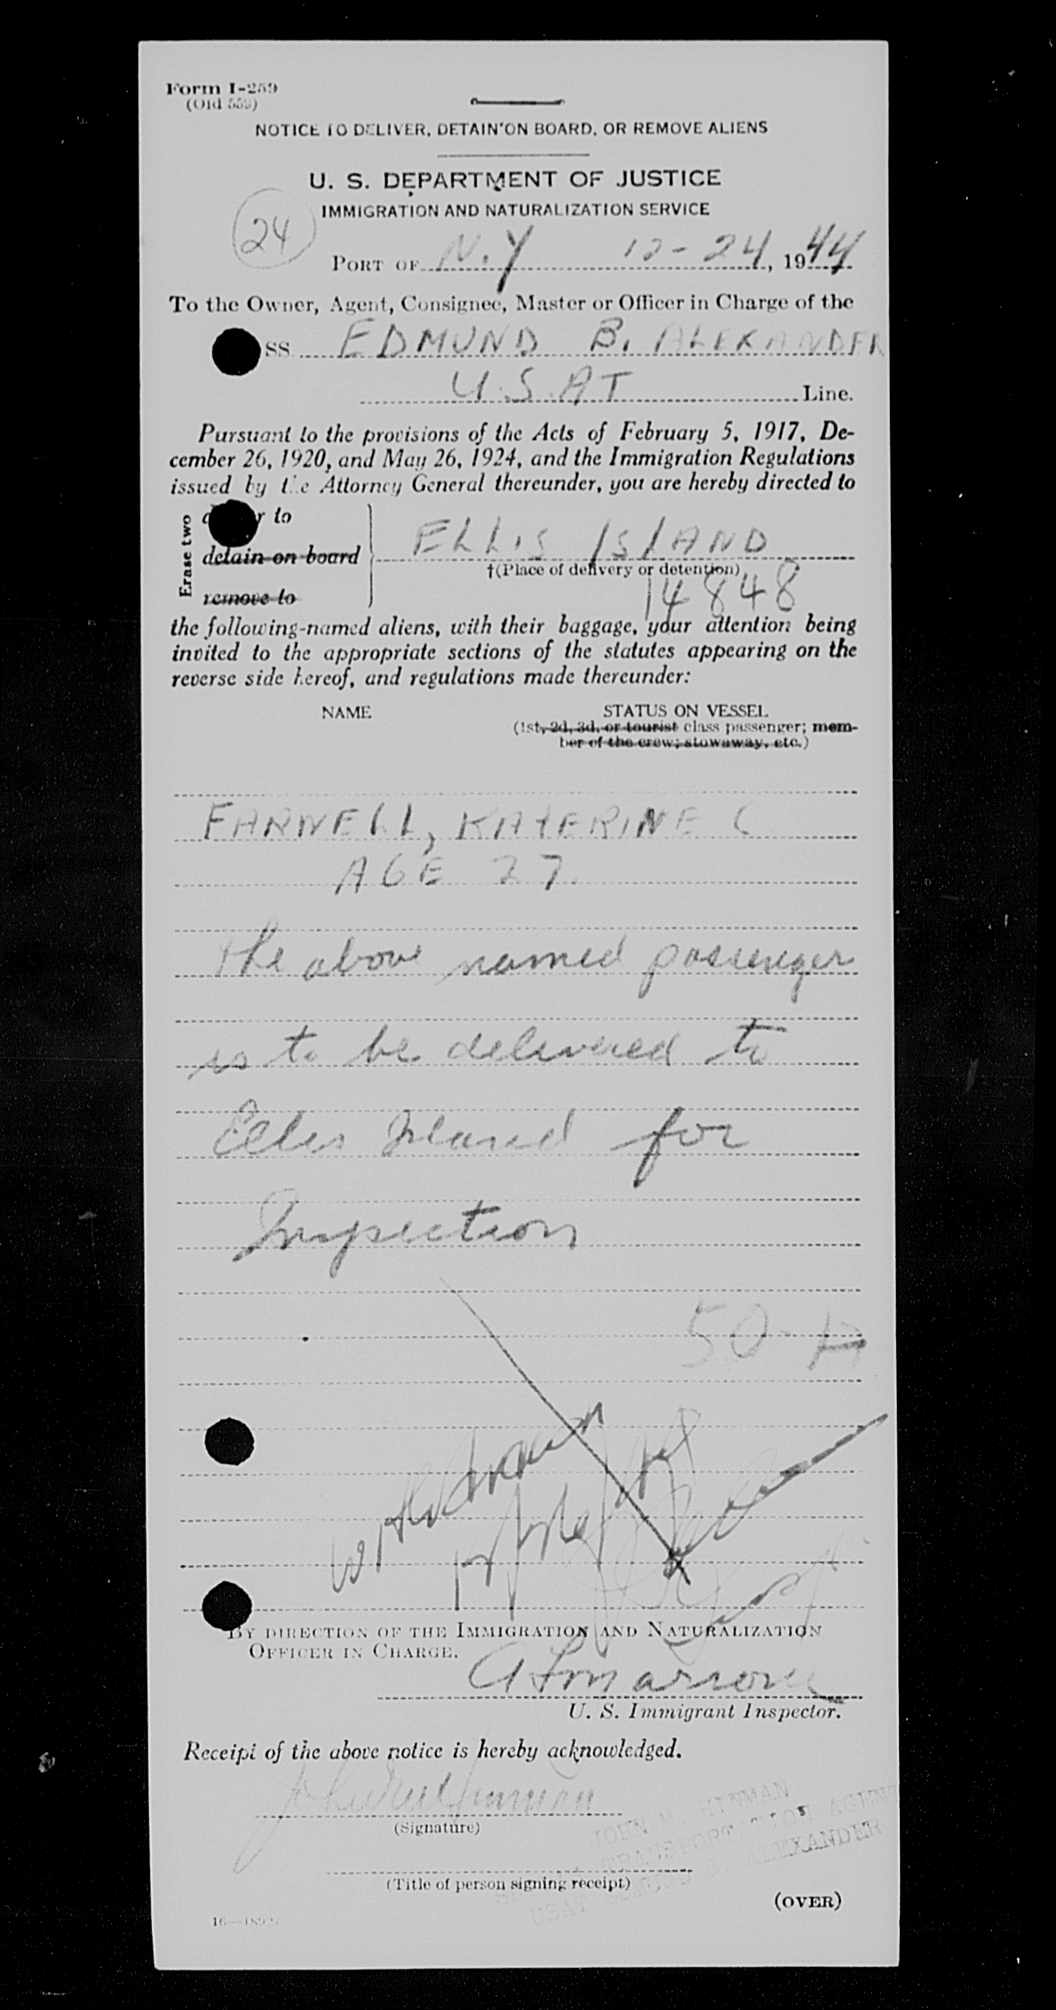 Form I-259
(Old 559)
NOTICE TO DELIVER, DETAIN ON BOARD, OR REMOVE ALIENS
U. S. DEPARTMENT OF JUSTICE
IMMIGRATION AND NATURALIZATION SERVICE
24
PORT OF N.Y 12-24, 1944
To the Owner, Agent, Consignee, Master or Officer in Charge of the
SS EDMUND B. ALEXANDER
U.S.A.T Line.
Pursuant to the provisions of the Acts of February 5, 1917, De-
cember 26, 1920, and May 26, 1924, and the Immigration Regulations
issued by the Attorney General thereunder, you are hereby directed to
Erase two
to
detain on board
remove to
ELLIS ISLAND
†(Place of delivery or detention)
14848
the following-named aliens, with their baggage, your attention being
invited to the appropriate sections of the statutes appearing on the
reverse side hereof, and regulations made thereunder:
NAME STATUS ON VESSEL
(1st, 2d, 3d, or tourist class passenger; mem-
ber of the crew; stowaway, etc.)
FARWELL, KATERINE C
AGE 27.
the above named passenger
is to be delivered to
Ellis Island for
Inspection
50-A
Withdrawn
BY DIRECTION OF THE IMMIGRATION AND NATURALIZATION
OFFICER IN CHARGE.
U. S. Immigrant Inspector.
Receipt of the above notice is hereby acknowledged.
(Signature)
JOHN
TRANSPORT AGENT
ALEXANDER
USAT
(Title of person signing receipt)
(OVER)